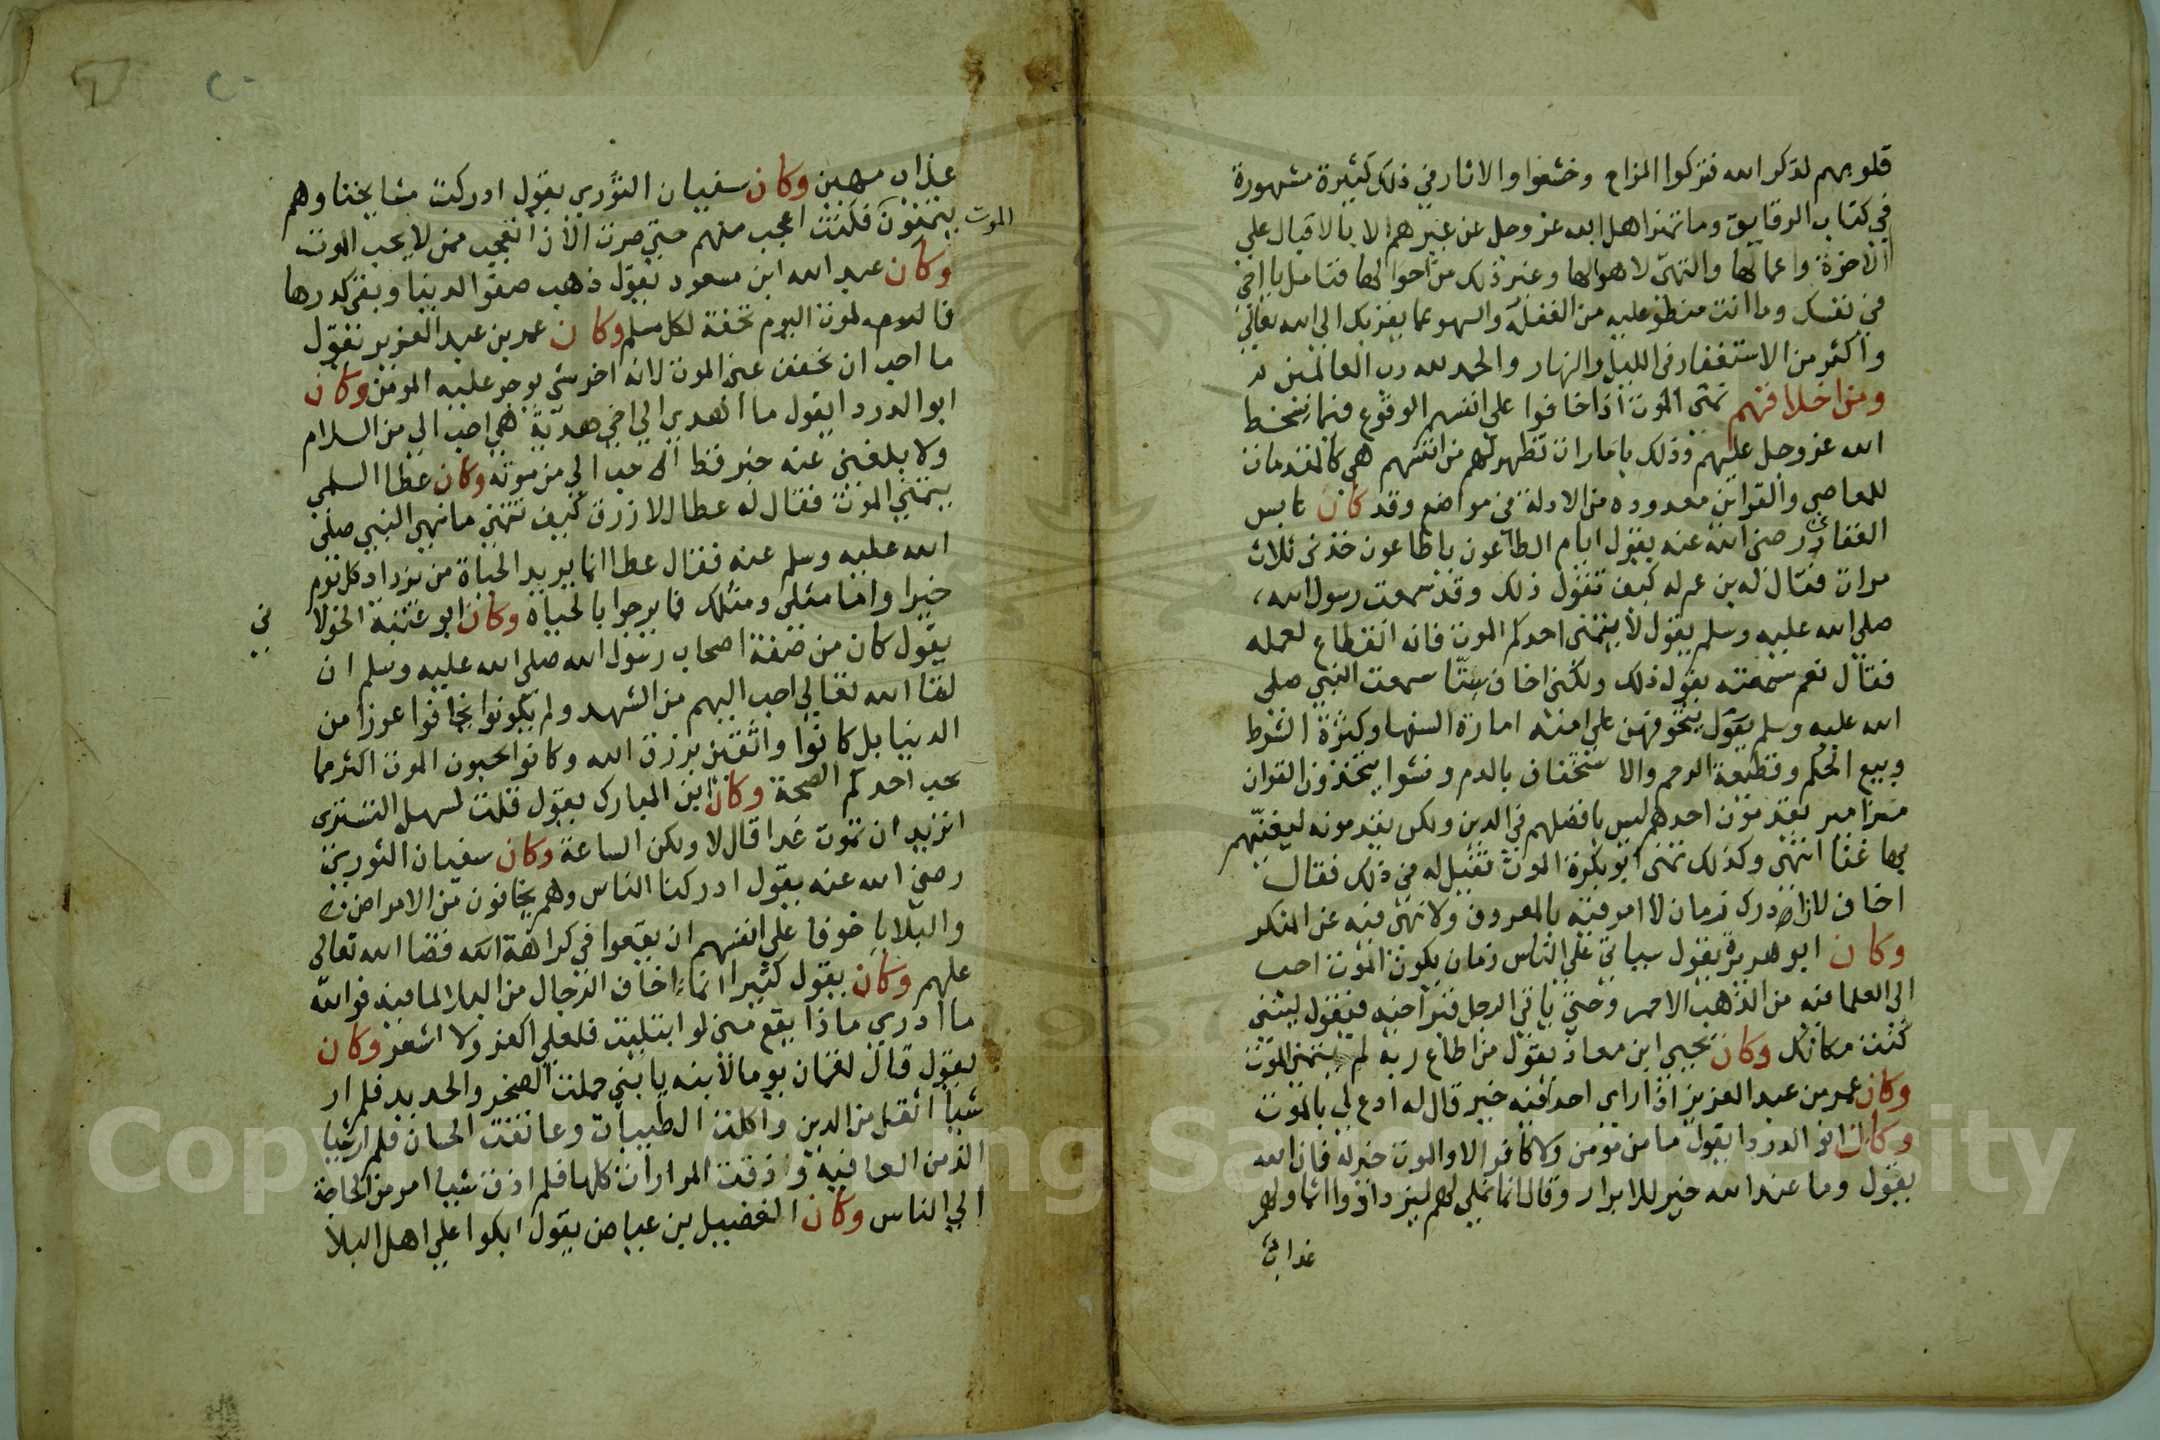 قلوبهم لذكر الله فتركوا المزاح وخشعوا والاثار في ذلك كثيرة مشهورة
في كتاب الرقايق وما تميزاهل الله عز وجل عن غيرهم الا بالاقبال علي
الاخرة واعمالها والتهيّ لاهوالها وغير ذلك من احوالها فتامل يا اخي
في نفسك وما انت منطو عليه من الغفلة والسهو عما يقربك الي الله تعالي
واكثر من الاستغفار في الليل والنهار والحمد لله رب العالمين
ومن اخلاقهم تمني الموت اذا خافوا علي انفسهم الوقوع فيما يسخط
الله عز وجل عليهم وذلك بامارات تظهر لهم من انفسهم هي كالمقدمات
للمعاصي والقواين معدوده من الادلة في مواضع وقد كان عابس
الغفاري رضي الله عنه يقول ايام الطاعون ياطاعون خذني ثلاث
مرات فقال له بن عم له كيف تقول ذلك وقد سمعت رسول الله
صلي الله عليه وسلم يقول لا يتمني احدكم الموت فانه انقطاع لعمله
فقال نعم سمعته يقول ذلك ولكني اخاف ستّا سمعت النبي صلي
الله عليه وسلم يقول يتخوفهن علي امته امارة السفها وكثرة الشرط
وبيع الحكم وقطيعة الرحم والاستخفاف بالدم ونشوا يتخذون القران
مزامير يقدمون احدهم ليس بافضلهم في الدين ولكن يقدمونه ليغنيهم
بها غنا انتهي وكذلك تمني ابو بكرة الموت فقيل له في ذلك فقال
اخاف لان ادرك زمان لا امر فيه بالمعروف ولا نهي فيه عن المنكر
وكان ابو هريرة يقول سياتي علي الناس زمان يكون الموت احب
الي العلما فيه من الذهب الاحمر وحتي ياتي الرجل قبر اخيه فيقول ليتني
كنت مكانك وكان يحيي ابن معاذ يقول من اطاع ربه لم يتمني الموت
وكان عمر بن عبد العزيز اذا راي احدا فيه خير قال له ادع لي بالموت
وكان ابو الدردا يقول ما من مومن ولا كافر الا والموت خير له فان الله
يقول وما عند الله خير للابرار وقال انما نملي لهم ليزدادوا اثما ولهم
عذاب
عذاب مهين وكان سفيان الثوري يقول ادركت مشايخنا وهم
يتمنون الموت فكنت اعجب منهم حتي صرت الان اتعجب ممن لا يحب الموت
وكان عبد الله ابن مسعود يقول ذهب صفو الدنيا وبقي كدرها
فالموت اليوم تحفة لكل مسلم وكان عمر بن عبد العزيز يقول
ما احب ان يخفف عني الموت لانه اخر شي يوجر عليه المومن وكان
ابو الدردا يقول ما اهدي الي اخي هدية هي احب الي من السلام
ولا بلغني عنه خبر قط احب الي من موته وكان عطا السلمي
يتمني الموت فقال له عطا الازرق كيف تتمني ما نهي النبي صلي
الله عليه وسلم عنه فقال عطا انما يريد الحياة من يزداد كل يوم
خيرا واما مثلي ومثلك فما يرجوا بالحياه وكان ابو عتبة الخولاني
يقول كان من صفة اصحاب رسول الله صلي الله عليه وسلم ان
لقا الله تعالي احب اليهم من الشهد ولم يكونوا يخافوا عوزا من
الدنيا بل كانوا واثقين برزق الله وكانوا يحبون الموت اكثر مما
يحب احدكم الصحة وكان ابن المبارك يقول قلت لسهل التستري
اتريد ان تموت غدا قال لا ولكن الساعة وكان سفيان الثوري
رضي الله عنه يقول ادركنا الناس وهم يخافون من الامراض
والبلايا خوفا علي انفسهم ان يقعوا في كراهة الله قضا الله تعالي
عليهم وكان يقول كثيرا انما اخاف الرجال من البلا لما فيه فوالله
ما ادري ماذا يقع مني لو ابتليت فلعلي اكفر ولا اشعر وكان
يقول قال لقمان يوما لابنه يا بني حملت الصخر والحديد فلم ار
شيا اثقل من الدين واكلت الطيبات وعانقت الحسان فلم ار شيا
الذ من العافية وذقت المرارات كلها فلم اذق شيا امر من الحاجة
الي الناس وكان الفضيل بن عياض يقول ابكوا علي اهل البلا
Copyright © King Saud University